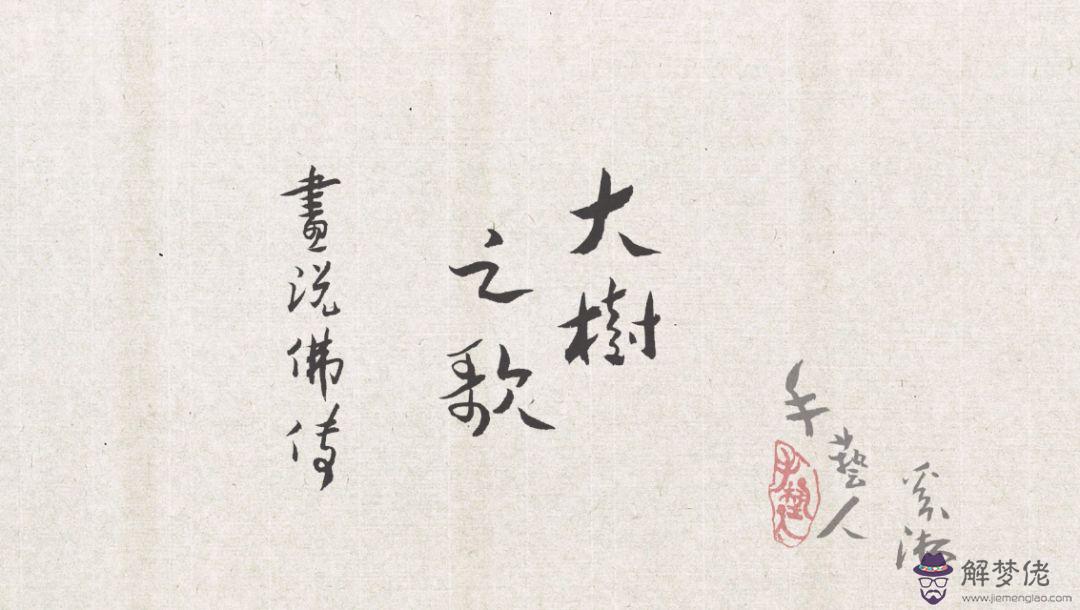 大樹
之歌
畫説佛傳
奚淞
手藝人
手藝人
解梦佬
www.jiemenglao.com